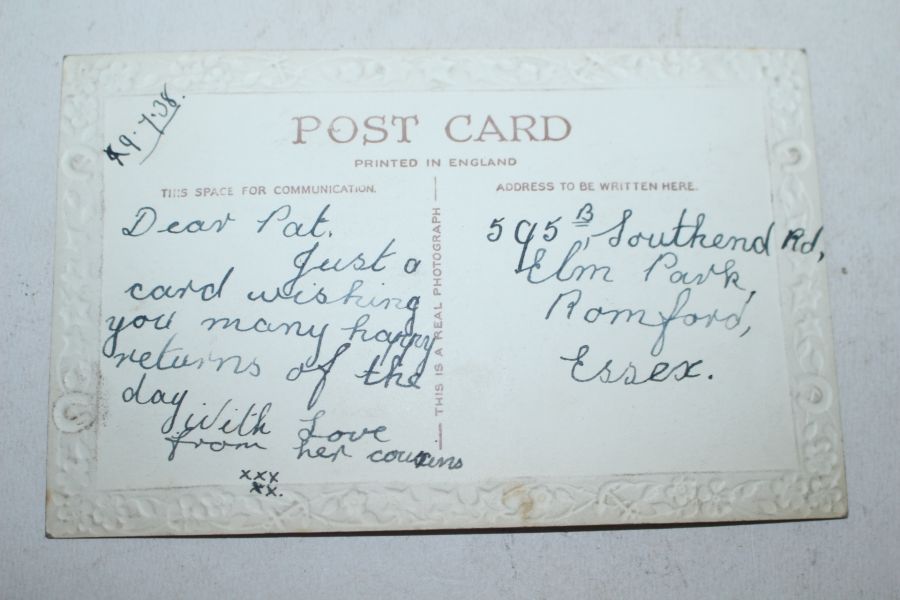 9.7.38.
POST CARD
PRINTED IN ENGLAND
THIS SPACE FOR COMMUNICATION.
ADDRESS TO BE WRITTEN HERE.
THIS IS A REAL PHOTOGRAPH
Dear Pat.
Just a
card wishing
you many happy
returns of the
day
With Love
from her cousins
xxx
xx.
595B, Southend Rd,
Elm Park,
Romford,
Essex.